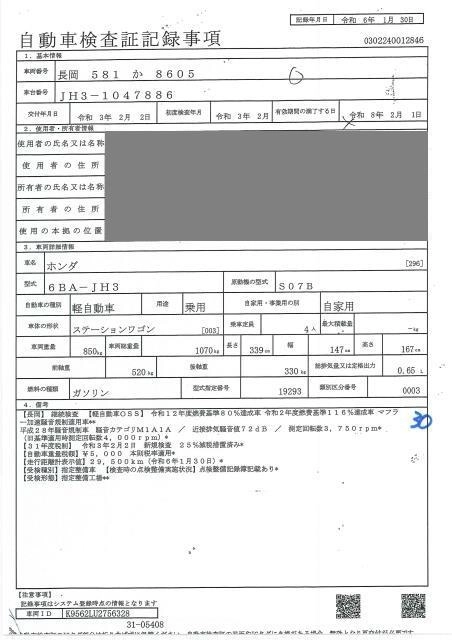 記録年月日 令和 6年 1月 30日
自動車検査証記録事項
0302240012846
1. 基本情報
車両番号 長岡 581 か 8605
車台番号 JH3-1047886
交付年月日 令和 3年 2月 2日 初度検査年月 令和 3年 2月 有効期間の満了する日 令和 8年 2月 1日
2. 使用者・所有者情報
使用者の氏名又は名称
使用者の住所
所有者の氏名又は名称
所有者の住所
使用の本拠の位置
3. 車両詳細情報
車名 ホンダ [296]
型式 6BA-JH3 原動機の型式 S07B
自動車の種別 軽自動車 用途 乗用 自家用・事業用の別 自家用
車体の形状 ステーションワゴン [003] 乗車定員 4人 最大積載量 -kg
車両重量 850kg 車両総重量 1070kg 長さ 339cm 幅 147cm 高さ 167cm
前軸重 520kg 後軸重 330kg 総排気量又は定格出力 0.65 L
燃料の種類 ガソリン 型式指定番号 19293 類別区分番号 0003
4. 備考
【長岡】 継続検査 【軽自動車OSS】 令和12年度燃費基準80%達成車 令和2年度燃費基準116%達成車 マフラ
ー加速騒音規制適用車**
30
平成28年騒音規制車 騒音カテゴリM1A1A / 近接排気騒音値72dB / 測定回転数3,750rpm*
(旧基準適用時測定回転数4,000rpm)*
【31年度税制】 令和3年2月2日 新規検査 25%減税措置済み*
【自動車重量税額】¥5,000 本則税率適用*
【走行距離計表示値】29,500km(令和6年1月30日)*
【受検種別】指定整備車 【検査時の点検整備実施状況】点検整備記録簿記載あり*
【受検形態】指定整備工場**
【注意事項】
記録事項はシステム登録時点の情報となります
車両ID K9562LU2756328
31-05408